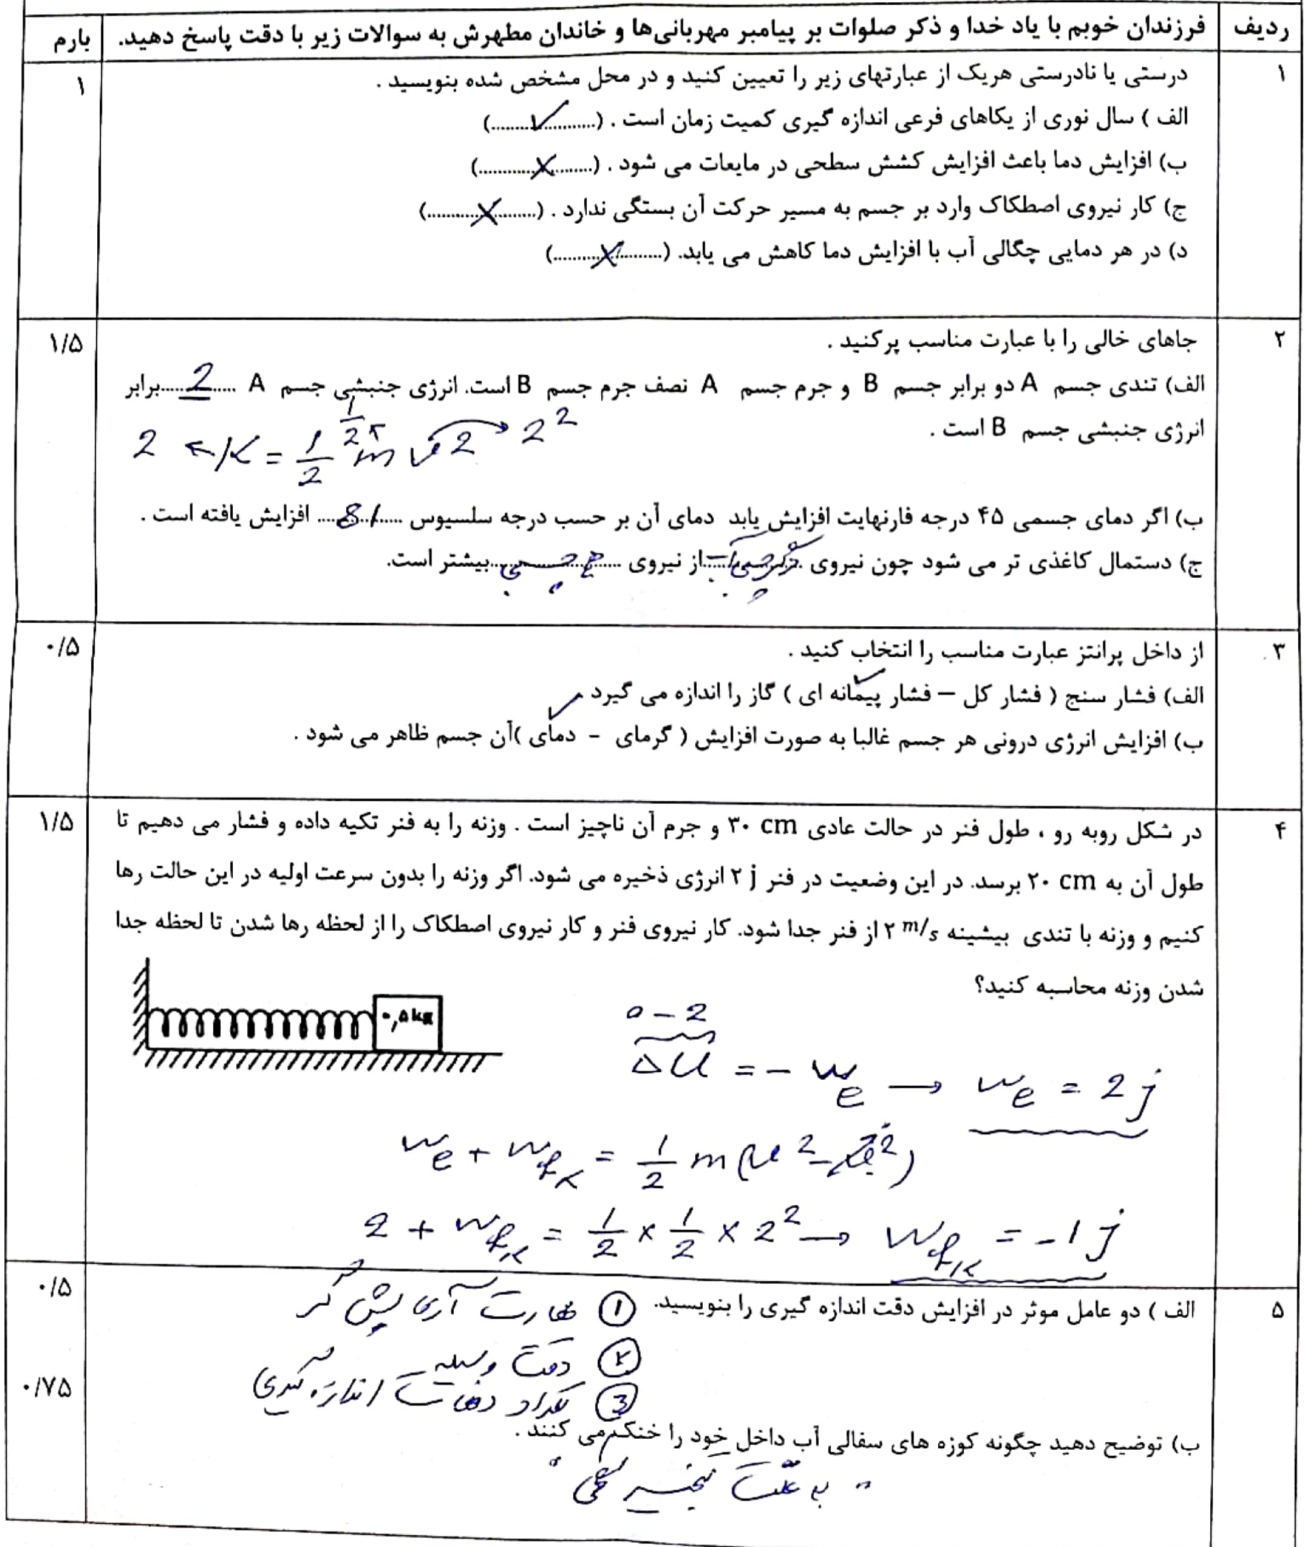 ردیف
فرزندان خوبم با یاد خدا و ذکر صلوات بر پیامبر مهربانی‌ها و خاندان مطهرش به سوالات زیر با دقت پاسخ دهید.
بارم
۱
درستی یا نادرستی هریک از عبارتهای زیر را تعیین کنید و در محل مشخص شده بنویسید .
۱
الف ) سال نوری از یکاهای فرعی اندازه گیری کمیت زمان است . (........✓............)
ب) افزایش دما باعث افزایش کشش سطحی در مایعات می شود . (........X............)
ج) کار نیروی اصطکاک وارد بر جسم به مسیر حرکت آن بستگی ندارد . (........X............)
د) در هر دمایی چگالی آب با افزایش دما کاهش می یابد. (........X............)
۲
جاهای خالی را با عبارت مناسب پرکنید .
۱/۵
الف) تندی جسم A دو برابر جسم B و جرم جسم A نصف جرم جسم B است. انرژی جنبشی جسم A .....2.....برابر
انرژی جنبشی جسم B است .
2 ← K = 1/2 m v² 1/2 2 → 2²
ب) اگر دمای جسمی ۴۵ درجه فارنهایت افزایش یابد دمای آن بر حسب درجه سلسیوس ........ افزایش یافته است .
ج) دستمال کاغذی تر می شود چون نیروی دگرچسبی از نیروی هم چسبی بیشتر است.
۳
از داخل پرانتز عبارت مناسب را انتخاب کنید .
۰/۵
الف) فشار سنج ( فشار کل – فشار پیمانه ای ✓ ) گاز را اندازه می گیرد .
ب) افزایش انرژی درونی هر جسم غالبا به صورت افزایش ( گرمای - دمای ✓ )آن جسم ظاهر می شود .
۴
در شکل روبه رو ، طول فنر در حالت عادی ۳۰ cm و جرم آن ناچیز است . وزنه را به فنر تکیه داده و فشار می دهیم تا
۱/۵
طول آن به ۲۰ cm برسد. در این وضعیت در فنر ۲ j انرژی ذخیره می شود. اگر وزنه را بدون سرعت اولیه در این حالت رها
کنیم و وزنه با تندی بیشینه ۲ m/s از فنر جدا شود. کار نیروی فنر و کار نیروی اصطکاک را از لحظه رها شدن تا لحظه جدا
شدن وزنه محاسبه کنید؟
۰,۵kg
0 - 2
ΔU = - We → We = 2 j
We + Wfk = 1/2 m (v² - v²)
2 + Wfk = 1/2 × 1/2 × 2² → Wfk = -1 j
۵
الف ) دو عامل موثر در افزایش دقت اندازه گیری را بنویسید. ① مهارت آزمایش گر
۰/۵
② دقت وسیله
③ تعداد دفعات اندازه گیری
۰/۷۵
ب) توضیح دهید چگونه کوزه های سفالی آب داخل خود را خنک می کنند .
" به علت تبخیر سطحی "